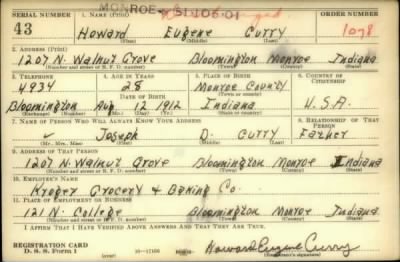 MONROE-1 51106 01
SERIAL NUMBER 1. NAME (Print) ORDER NUMBER
43 Howard Eugene Curry 1078
(First) (Middle) (Last)
2. ADDRESS (Print)
1207 N. Walnut Grove Bloomington Monroe Indiana
(Number and street or R. F. D. number) (Town) (County) (State)
3. TELEPHONE 4. AGE IN YEARS 5. PLACE OF BIRTH 6. COUNTRY OF CITIZENSHIP
4934 28 Monroe County
DATE OF BIRTH (Town or county)
Bloomington Aug 12 1912 Indiana U.S.A.
(Exchange) (Number) (Mo.) (Day) (Yr.) (State or country)
7. NAME OF PERSON WHO WILL ALWAYS KNOW YOUR ADDRESS 8. RELATIONSHIP OF THAT PERSON
Joseph D. Curry Father
(Mr., Mrs., Miss) (First) (Middle) (Last)
9. ADDRESS OF THAT PERSON
1207 N. Walnut Grove Bloomington Monroe Indiana
(Number and street or R. F. D. number) (Town) (County) (State)
10. EMPLOYER'S NAME
Kroger Grocery & Baking Co.
11. PLACE OF EMPLOYMENT OR BUSINESS
121 N. College Bloomington Monroe Indiana
(Number and street or R. F. D. number) (Town) (County) (State)
I AFFIRM THAT I HAVE VERIFIED ABOVE ANSWERS AND THAT THEY ARE TRUE.
REGISTRATION CARD
D. S. S. Form 1 16—17105 Howard Eugene Curry
(Registrant's signature)